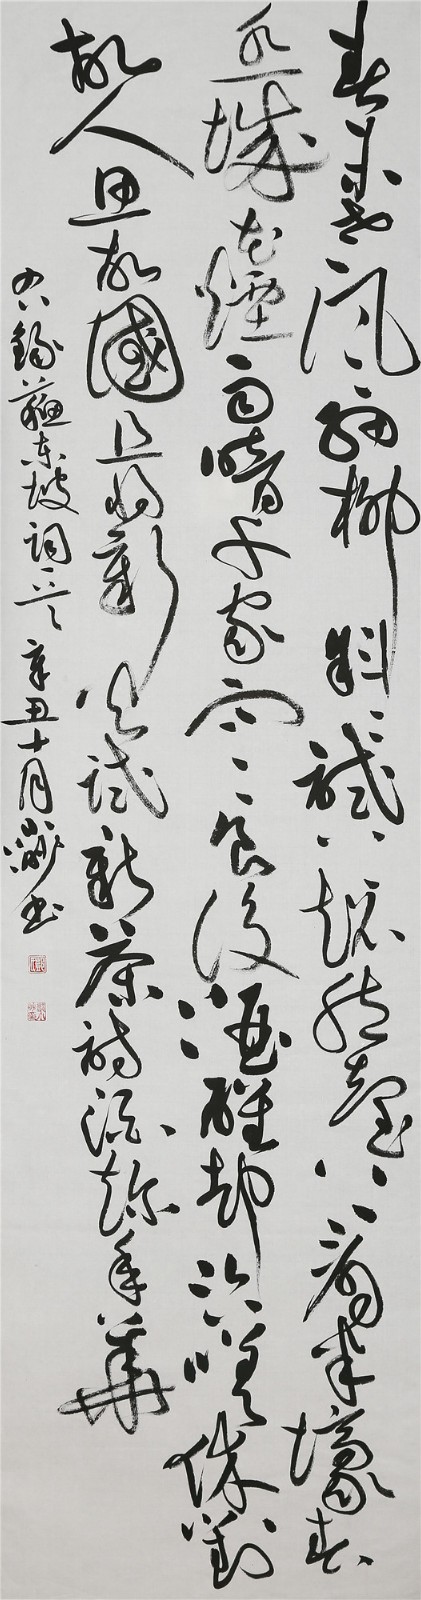 春未老風細柳斜〻試上超然臺上看半壕春
水一城花煙雨暗千家寒食後酒醒却咨嗟休對
故人思故國且將新火試新茶詩酒趁年華
右錄蘇東坡詞一首辛丑十月書